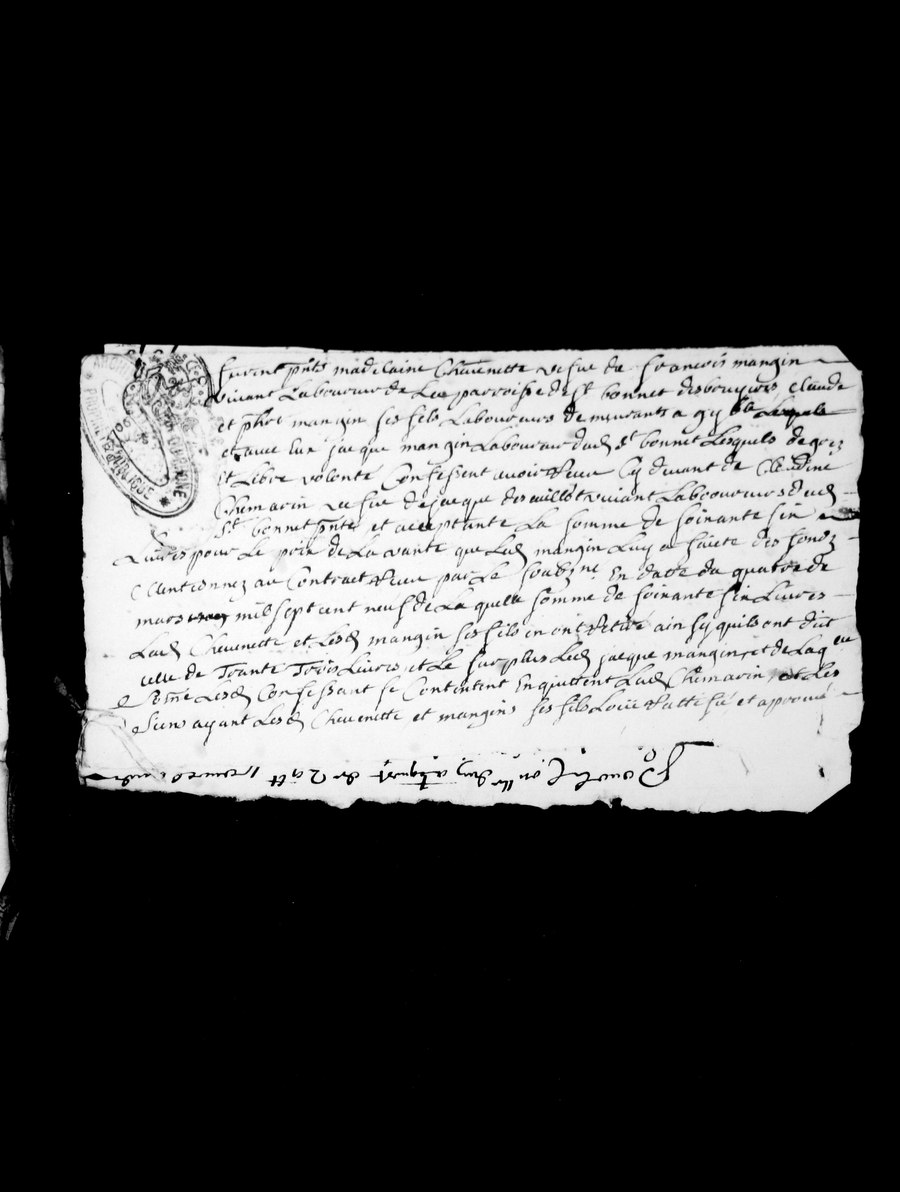 furent pnts madelaine Chevenette vefue de francois mangin
vivant Laboureur de La parroisse de St bonnet desbruyeres, claude
et phet mangin ses fils Laboureurs demeurants a
et avec Eux jacque mangin Laboureur dud St bonnet Lesquels de grez
et Libre volonté Confessent avoir Receu cy devant de Claudine
Chemarin vefue de jacque vivant Laboureur dud
St bonnet pnte et acceptante La somme de soixante six
Livres pour Le prix de La vante que Lesd mangin Luy a faicte des fondz
Mentionnez au Contract Receu par Le soubzne En datte du quatre de
mars mil sept cent neuf de La quelle somme de soixante six Livres
Lad Chevenette et Lesd mangin ses fils en ont Retiré ainsy quils ont dict
celle de Trante Trois Livres et Le surplus Led jacque mangin, et de Laqlle
some Lesd Confessant se Contentent En quittent Lad Chemarin, et Les
siens ayant Lesd Chevenette et mangins ses fils Loué Rattiffié et approuvé